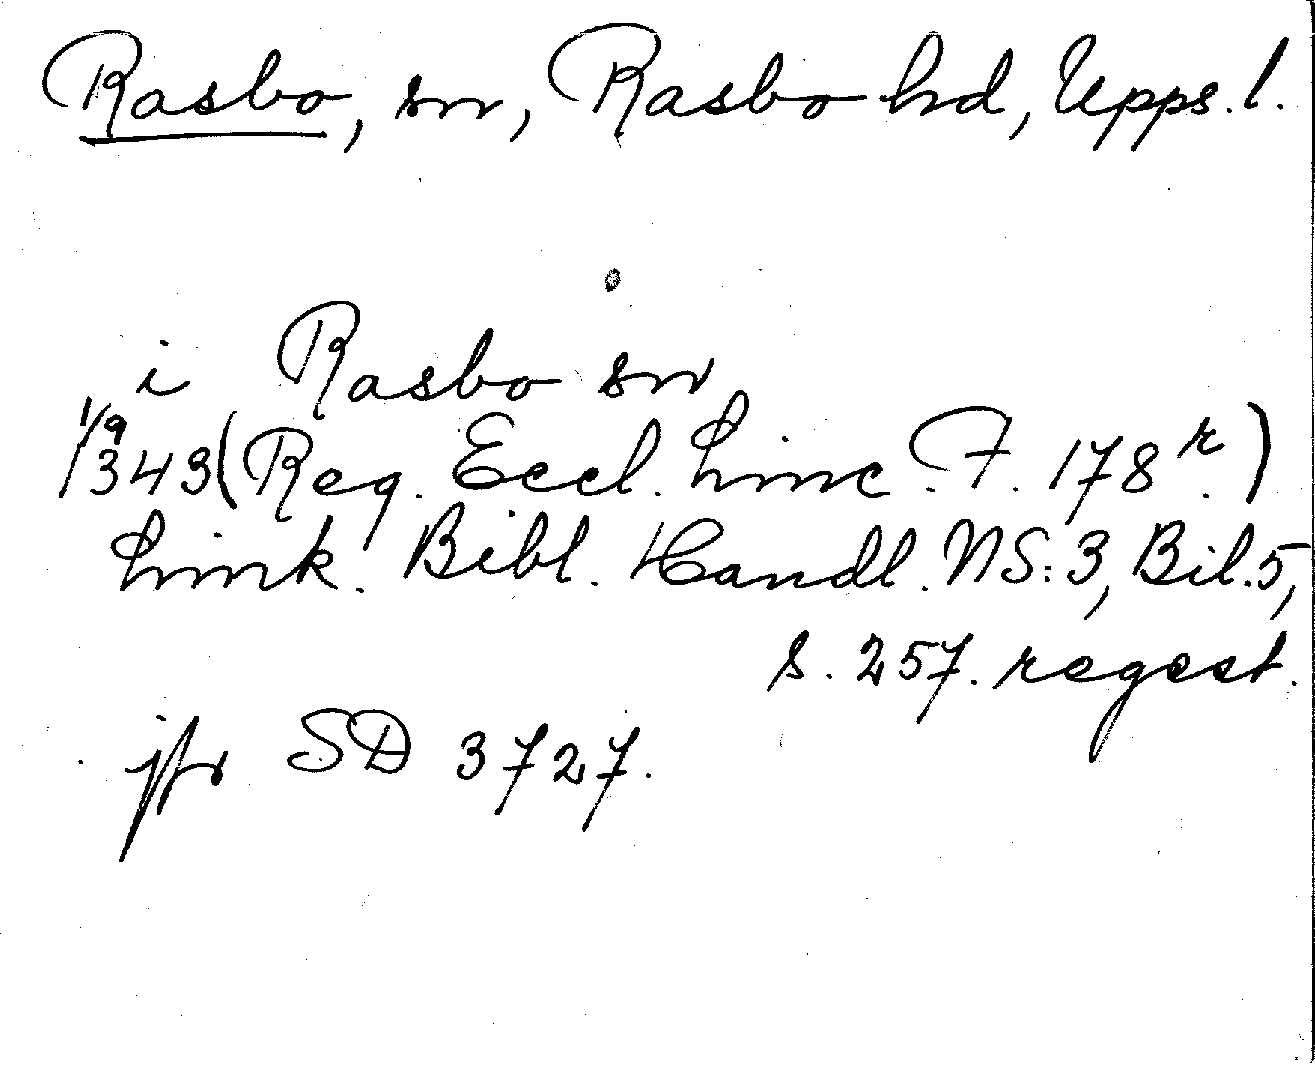 Rasbo, sn, Rasbo hd, Upps. l.
i Rasbo sn
1/9 1343 (Reg. Eccl. Linc. F. 178 r.)
Link. Bibl. Handl. NS: 3, Bil. 5,
s. 257. regest.
jfr SD 3727.